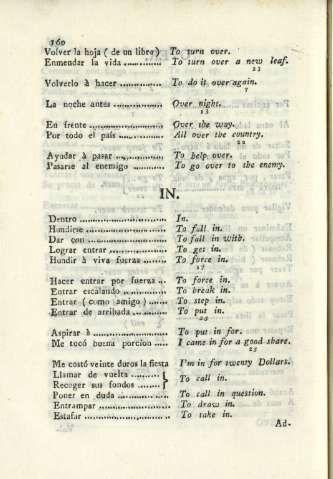 160
Volver la hoja ( de un libro ) To turn over.
Enmendar la vida .............. To turn over a new leaf.
23
Volverlo à hacer ............... To do it over again.
7
La noche antes ................. Over night.
15
En frente ......................... Over the way.
Por todo el país ................ All over the country.
22
Ayudar à pasar ................. To help over.
Pasarse al enemigo ........... To go over to the enemy.
IN.
Dentro ............................. In.
Hundirse ......................... To fall in.
Dar con ........................... To fall in with.
Lograr entrar ................... To get in.
Hundir à viva fuerza ........ To force in.
17
Hacer entrar por fuerza ..... To force in.
Entrar escalando .............. To break in.
Entrar ( como amigo ) ...... To step in.
Entrar de arribada ............ To put in.
Aspirar à ......................... To put in for.
Me tocó buena porcion ..... I came in for a good share.
25
Me costó veinte duros la fiesta I'm in for twenty Dollars.
Llamar de vuelta ......... } To call in.
Recoger sus fondos .......
Poner en duda .................. To call in question.
Entrampar ....................... To draw in.
Estafar ............................. To take in.
Ad-